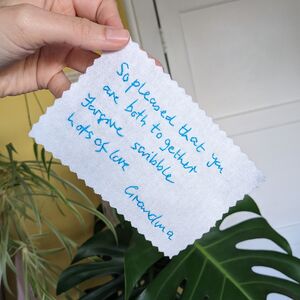 So pleased that you
are both to gether
Forgive scribble
Lots of love
Grandma